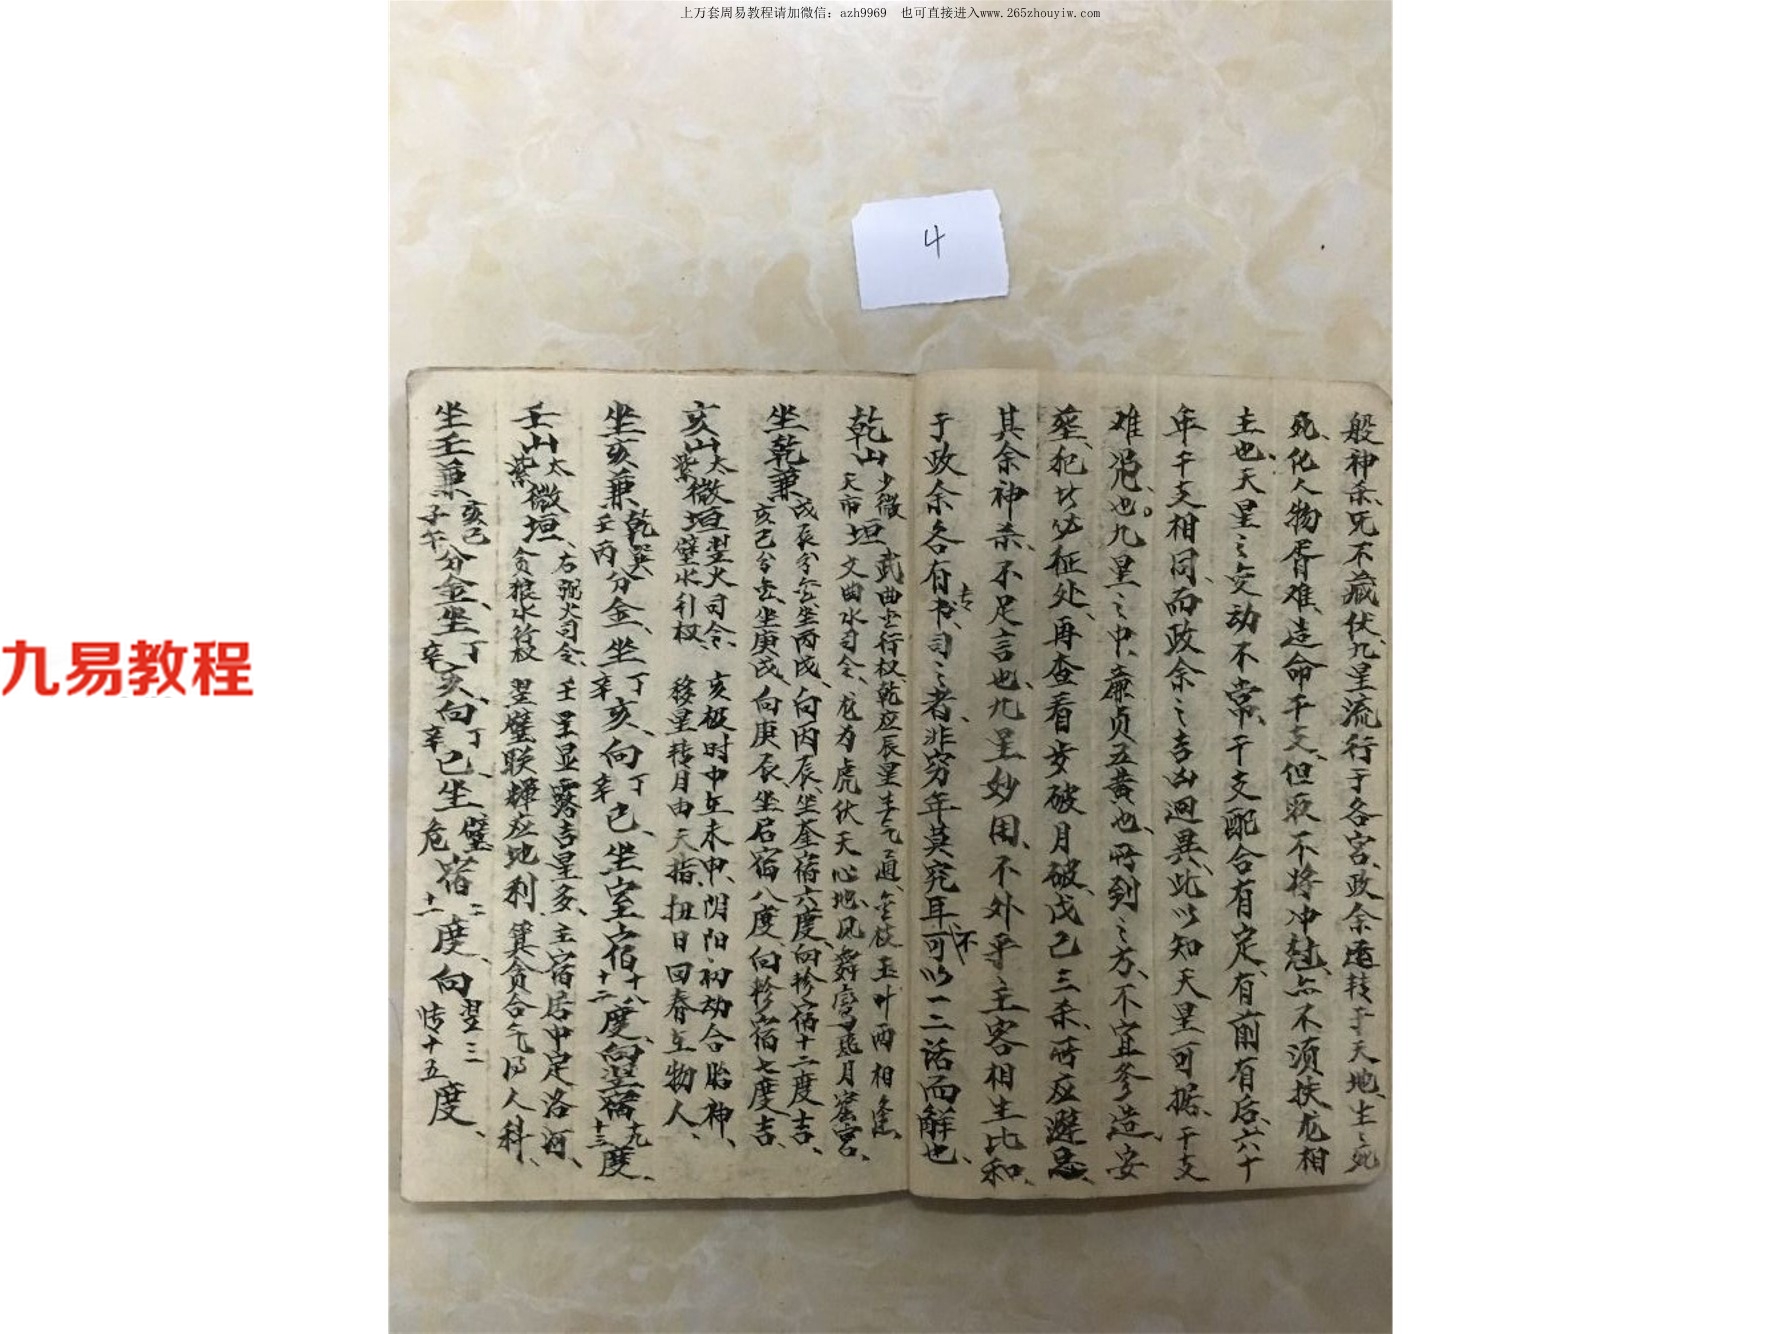 上万套周易教程请加微信：azh9969　也可直接进入www.265zhouyiw.com
4
九易教程
般神杀、咒不藏伏、九星流行于各宫、政余运转于天地、生之死
死、化人物胥难、造命干支、但取不将冲尅、亦不须扶龙相
主也、天星之变动不常、干支配合有定、有前有后、六十
年干支相同、而政余之吉凶迥異、此以知天星可据、干支
难凭也。九星之中、廉贞五黄也、所到之方、不宜参造安
葬、犯必征处、再查看岁破月破、戊己三杀、所应避忌、
其余神杀、不足言也、九星妙用、不外乎主客相生比和、
于政余各有专书、司之者、非穷年莫究耳、不可以一二话而解也、
乾山 少微 天市 垣 武曲金行权、乾应辰星生气通、金枝玉叶两相逢、
文曲水司令、龙为虎伏天心地、风舞鸾 月窟宫、
坐乾兼 戌辰分金、坐丙戌、向丙辰、坐奎宿六度、向轸宿十二度吉、
亥己分金、坐庚戌、向庚辰、坐 宿八度、向轸宿七度吉、
亥山 太 紫 微垣 翌火司令、亥极时中在未申、阴阳初动合胎神、
璧水引权、移星转月由天指、扭日回春在物人、
坐亥兼 乾巽 壬丙 分金、坐 丁 辛 亥、向 丁 辛 己、坐室宿 十八 十二 度、向翌宿 十九 十三 度、
壬山 太 紫 微垣、右弼火司令、壬星显露吉星多、主宿居中定洛河、
贪狼水行权 翌璧联辉应地利、箕贪合气得人科、
坐壬兼 亥己 子午 分金、坐 丁 辛 亥、向 丁 辛 己、坐 璧 危 宿 二 十一 度、向 翌三 十五 度、